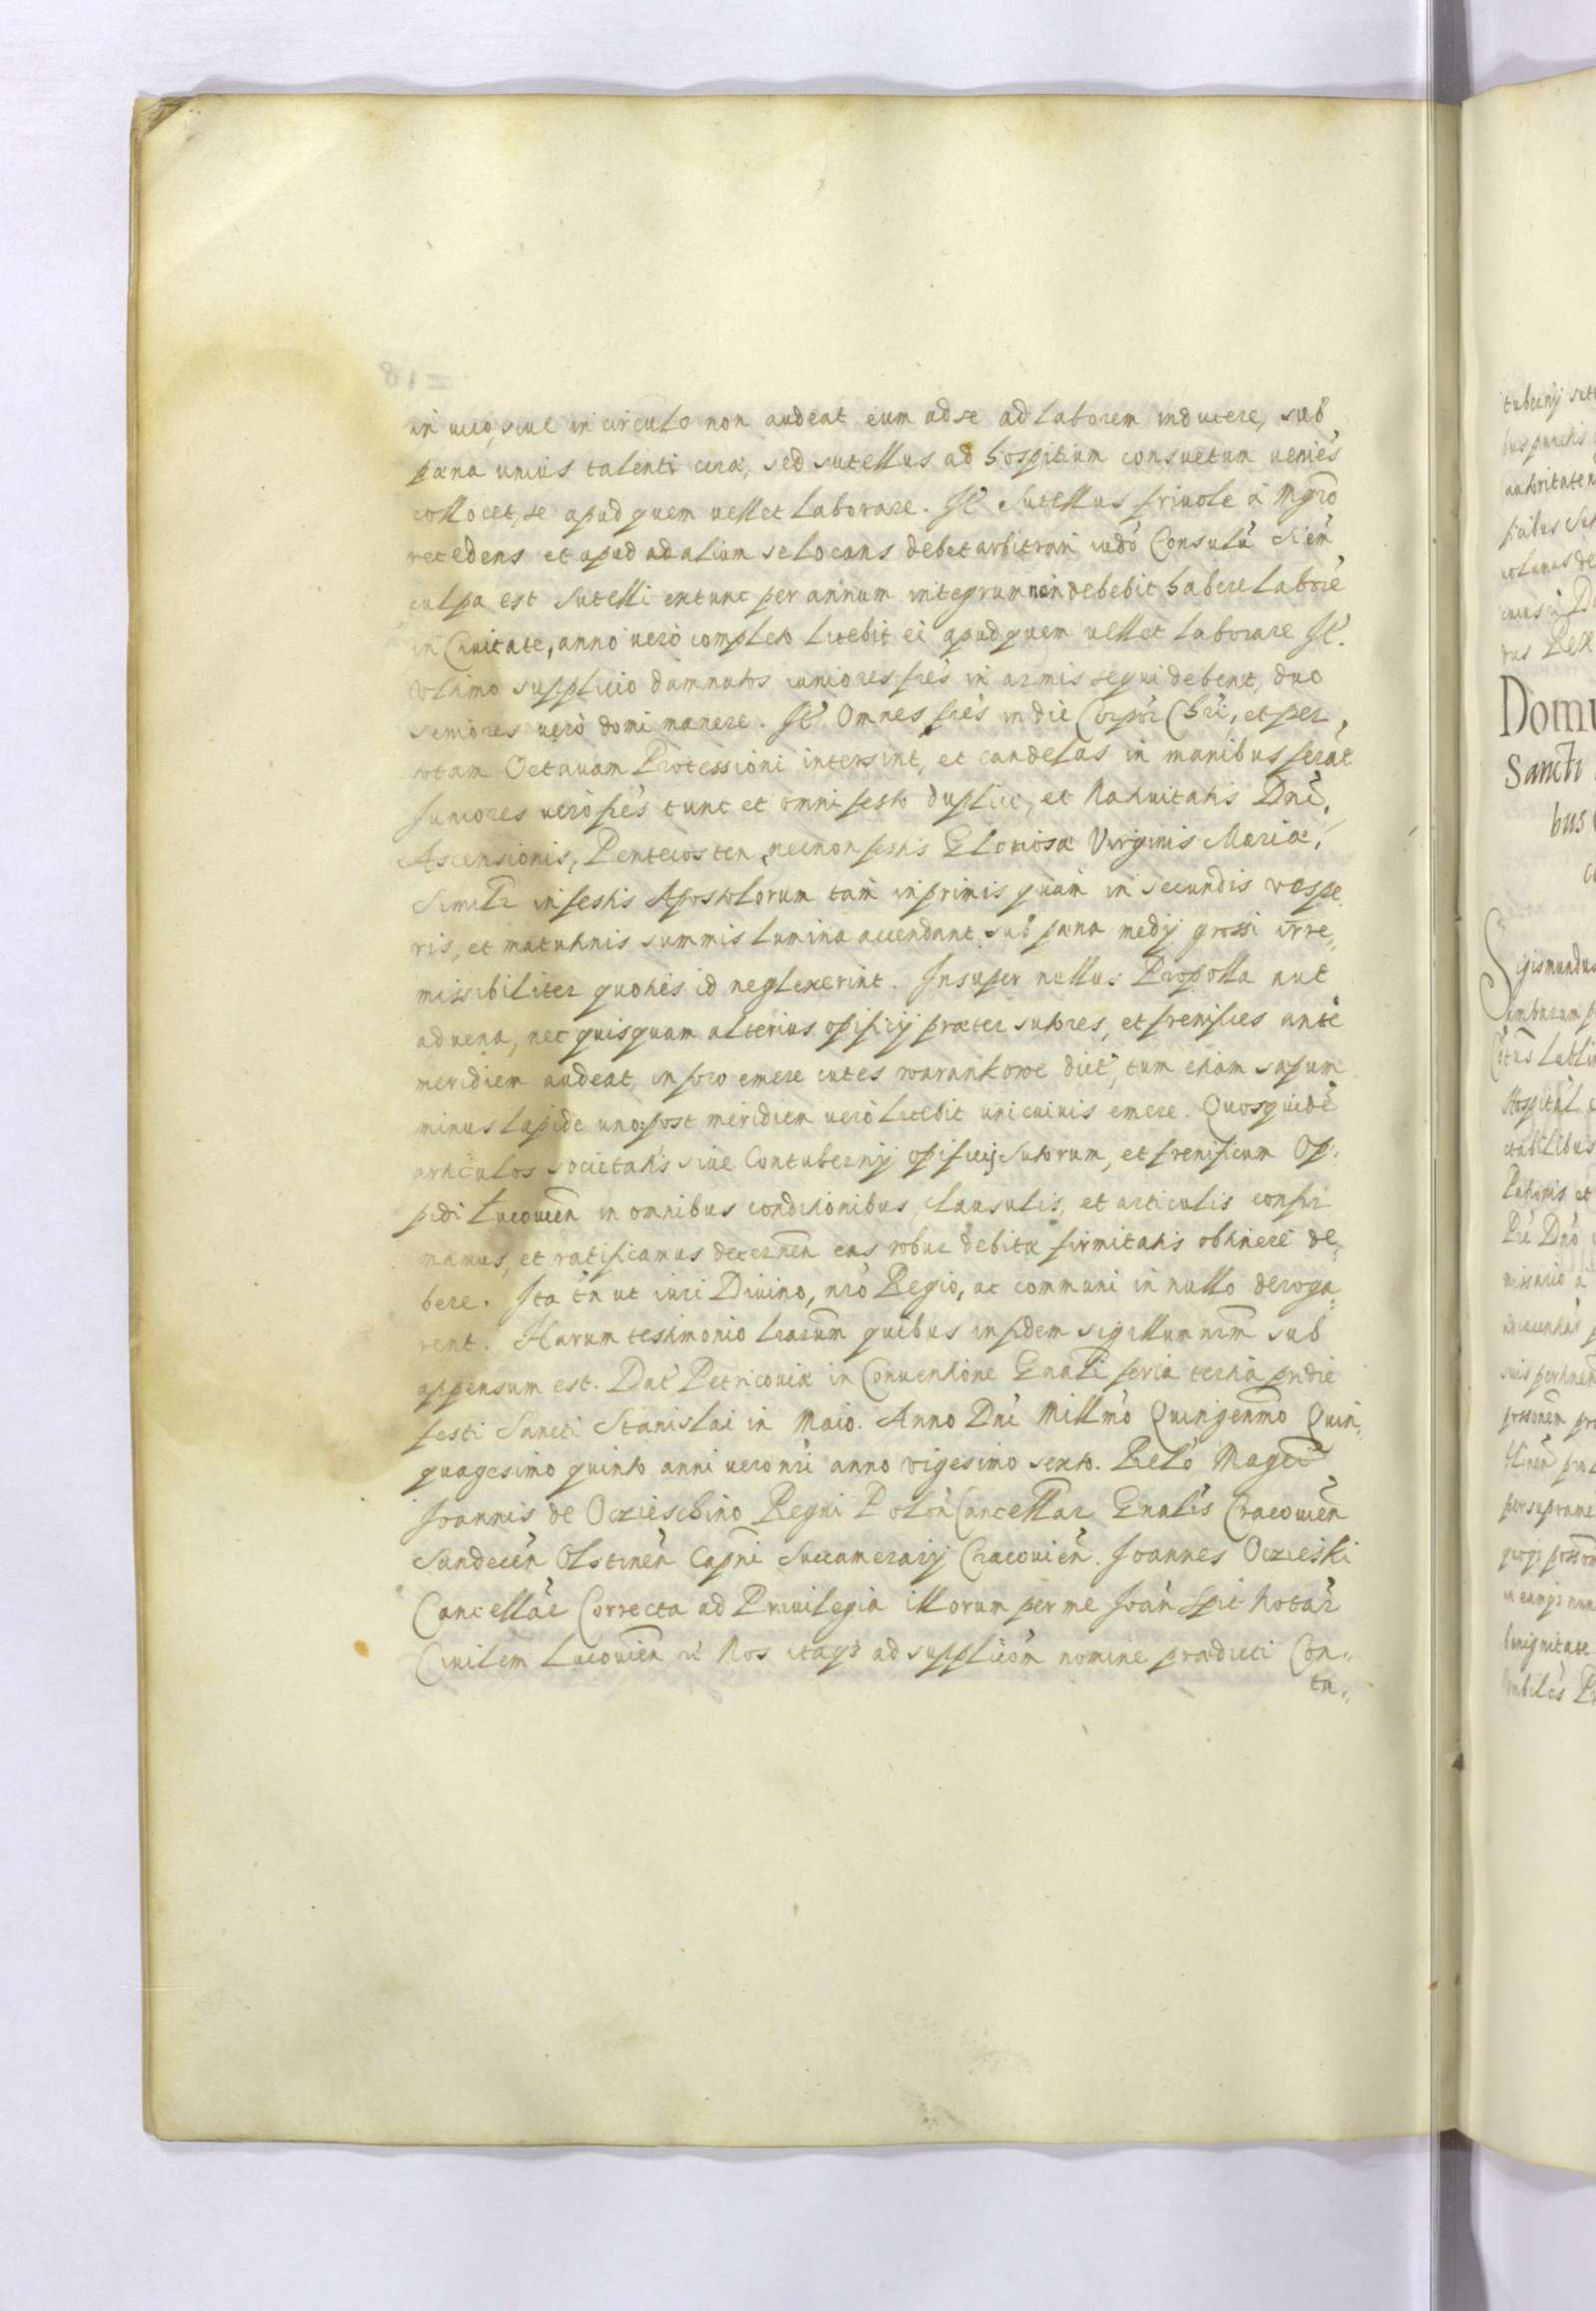 in uico, siue in circulo non audeat eum ad se ad laborem inducere, sub
pæna unius talenti ceræ, sed sutellus ad hospitium consuetum venies
collocet, se apud quem uellet laborare. It Sutellus friuole à Mgro
recedens et apud ad alium se locans debet arbitrari iudo Consulũ si en
culpa est sutelli extunc per annum integrum non debebit habere laborẽ
in Ciuitate, anno uerò completo licebit ei apud quem uellet laborare It.
ultimo supplicio damnatos iuniores frẽs in armis sequi debent, duo
seniores uerò domi manere. It Omnes frẽs in die Corpor Chri, et per,
totam Octauam Processioni intersint, et candelas in manibus ferãt
Juniores uerò frẽs tunc et omni festo duplici, et Natiuitatis Dni,
Ascensionis, Pentecosten, necnon festis Gloriosæ Virginis Mariæ,
Similr in festis Apostolorum tam in primis quàm in secundis vespe
ris, et matutinis summis lumina accendant sub pæna medij grossi irre,,
missibiliter quoties id neglexerint. Insuper nullus Propolla aut
aduena, nec quisquam alterius opificij præter sutores, et frenifices antè
meridiem audeat, in foro emere cutes warankowe dict, tum etiam sapum
minus lapide uno: post meridiem uerò licebit unicuiuis emere. Quosquidẽ
articulos societatis siue Contubernij opificij sutorum, et frenificum Op:
pidi Lucouien in omnibus conditionibus clausulis, et articulis confir
mamus, et ratificamus decernen eas robur debitæ firmitatis obtinere de,,
bere. Ita tn ut iuri Diuino, nro Regio, ac communi in nullo deroga,,
rent. Harum testimonio lrarum quibus in fidem sigillum nrm sub
appensum est. Dat Petricouiæ in Conuentione Gnali feria tertia pridie
festi Sancti Stanislai in Maio. Anno Dni Millmo Quingenmo Quin,,
quagesimo quinto anni uero nri anno vigesimo sexto. Relo Magci
Joannis de Oczieschino Regni Polon Cancellar Gnalis Cracouien
Sandecen Olstinen Capni Succamerarij Cracouien. Joannes Oczieski
Cancellar Correcta ad Priuilegia illorum per me Joan Spit Notar
Ciuilem Lucouien Nos itaq3 ad supplicom nomine prædicti Con,,
tu,,
tubernij
autoritaten
Rex
Domu
Sancti
bus
Sigismundus
Lubli
Hospital
et
Dno
posson
benignitate